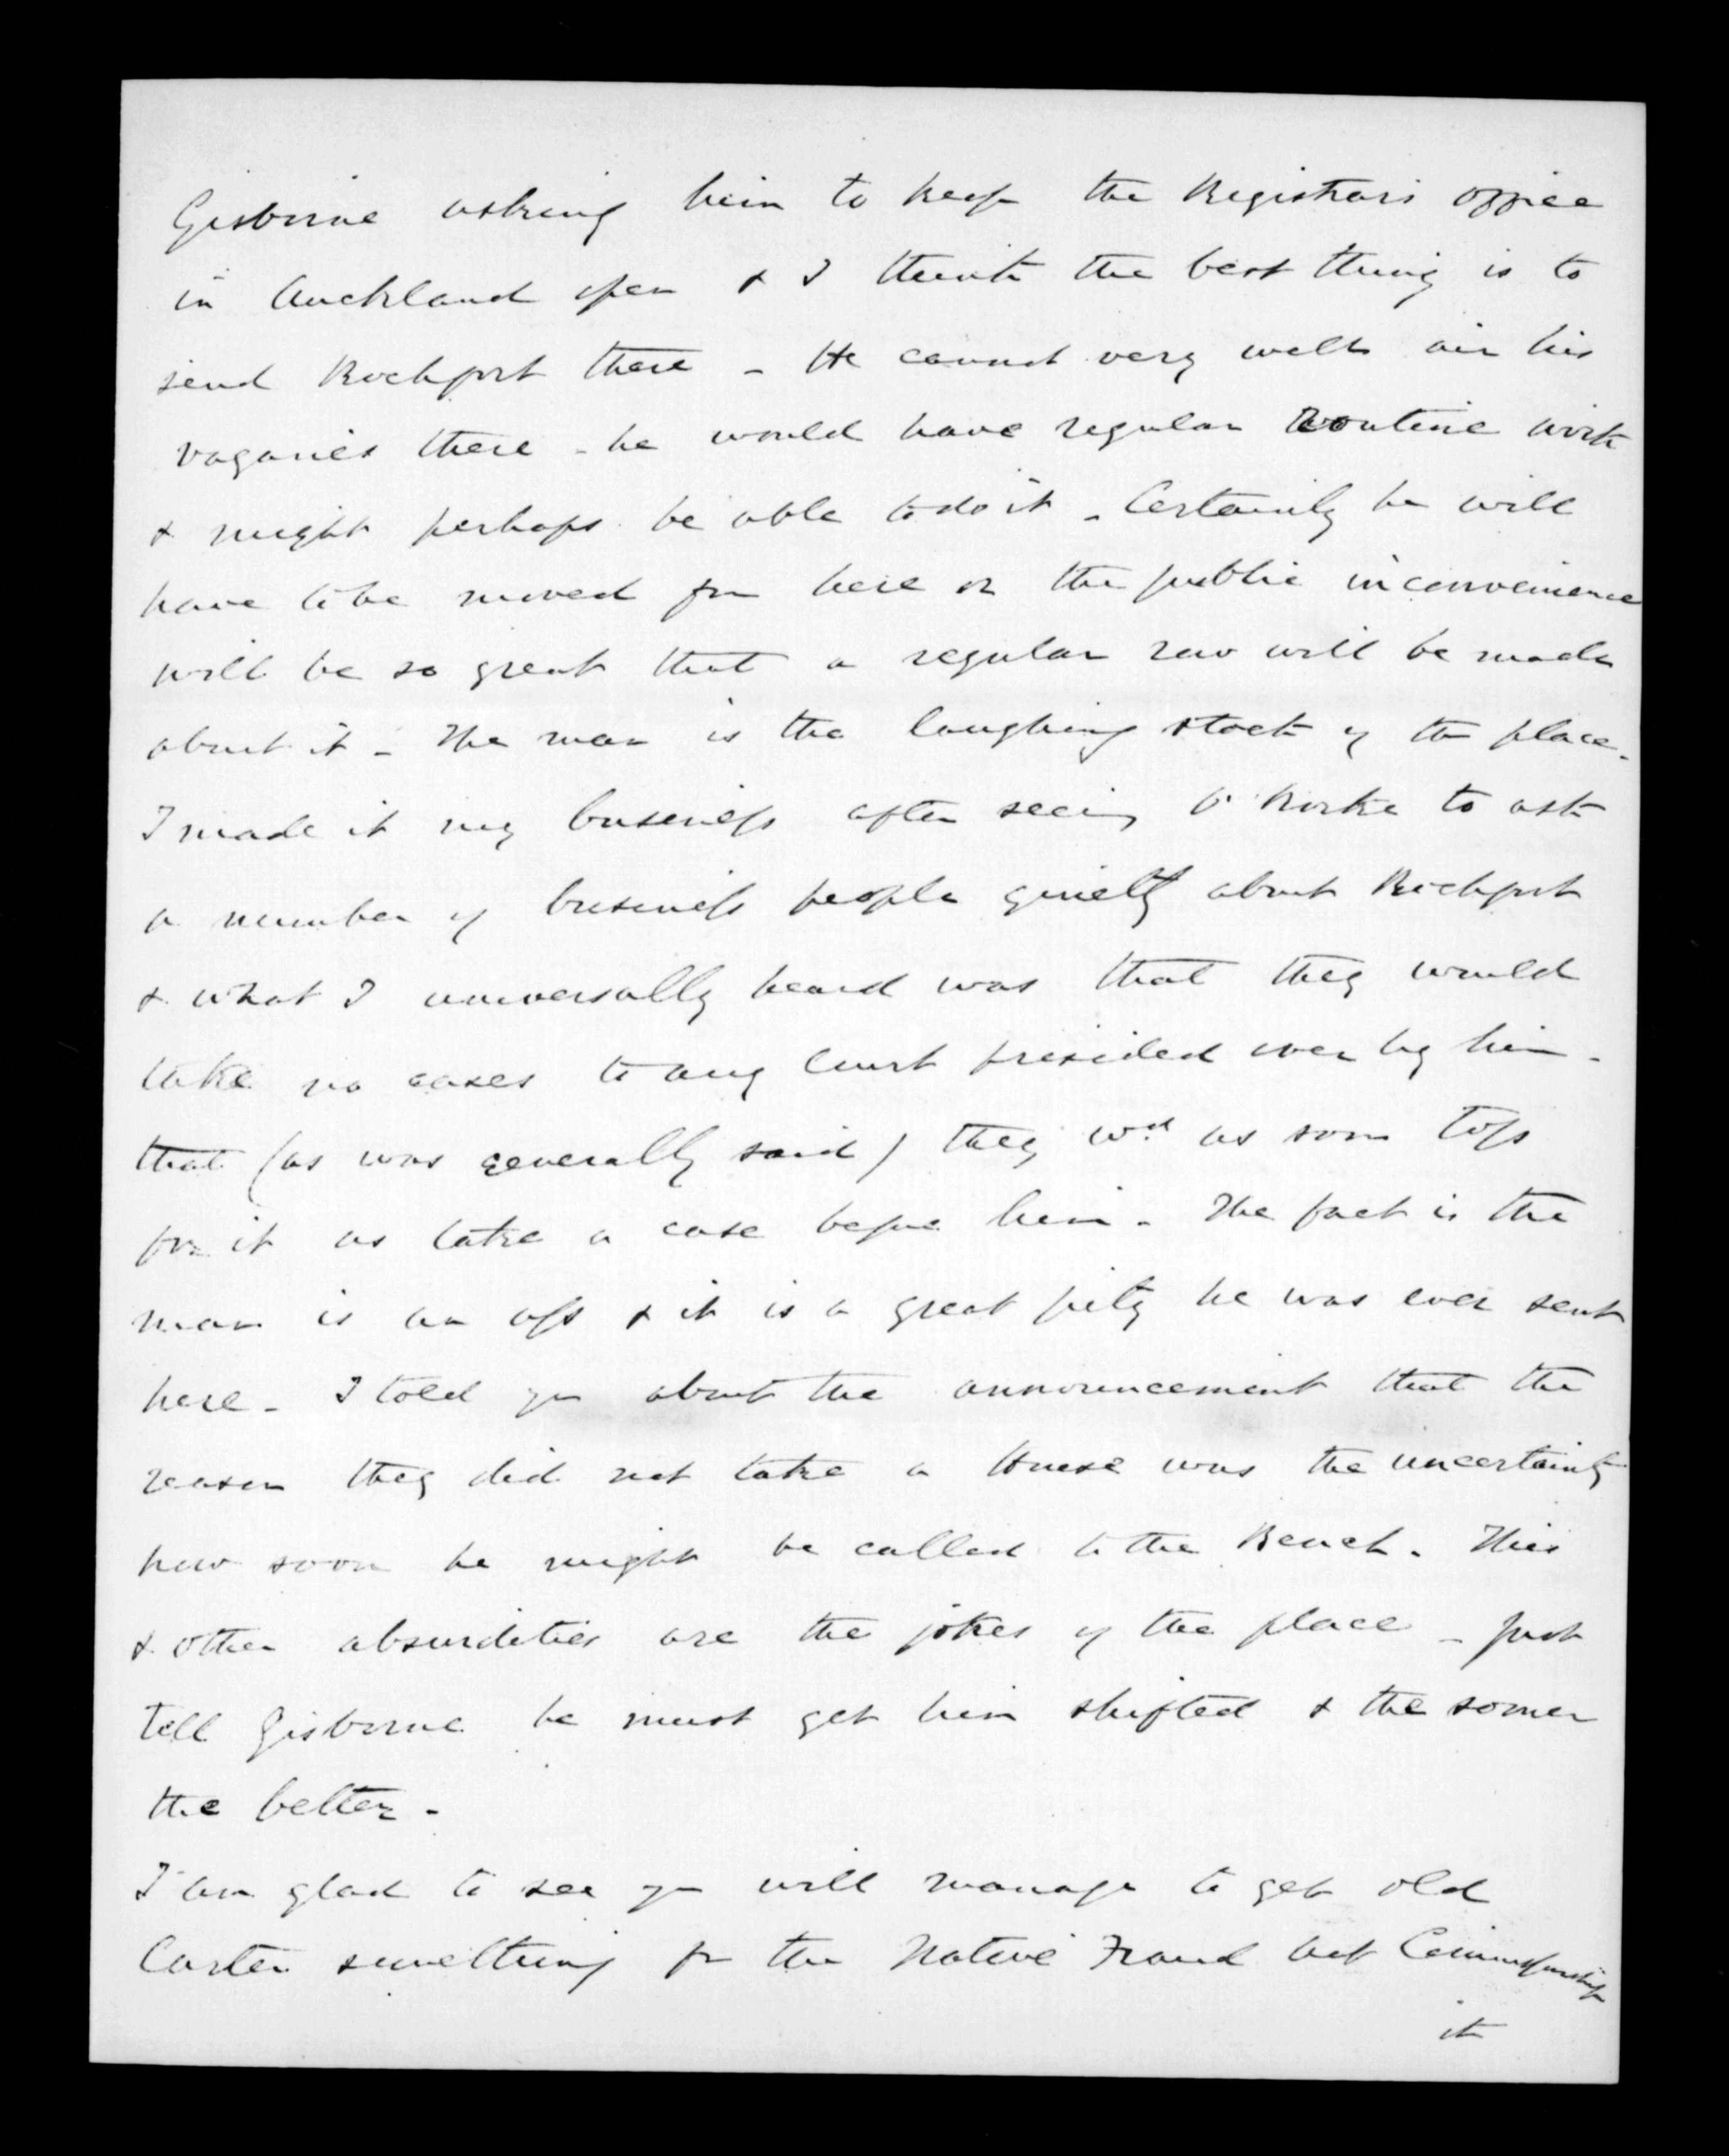 Gisborne asking him to keep the Registrars office
in Auckland open & I think the best thing is to
send Rochfort there - He cannot very well air his
vagaries there - he would have regular Routine work
& might perhaps be able to do it - Certainly he will
have to be moved from here or the public inconvenience
will be so great that a regular row will be made
about it - The man is the laughing stock of the place -
I made it my business after seeing O'Rorke to ask
a number of business people quietly about Rochfort
& what I universally heard was that they would
take no cases to any Court presided over by him -
that (as was generally said) they wd as soon toss
for it as take a case before him - The fact is the
man is an ass & it is a great pity he was ever sent
here - I told you about the announcement that the
reason they did not take a House was the uncertainty
how soon he might be called to the Bench. This
& other absurdities are the jokes of the place - Just
tell Gisborne he must get him shifted & the sooner
the better -
I am glad to see you will manage to get old
Carter something for the Native Fraud act Commissionership
it